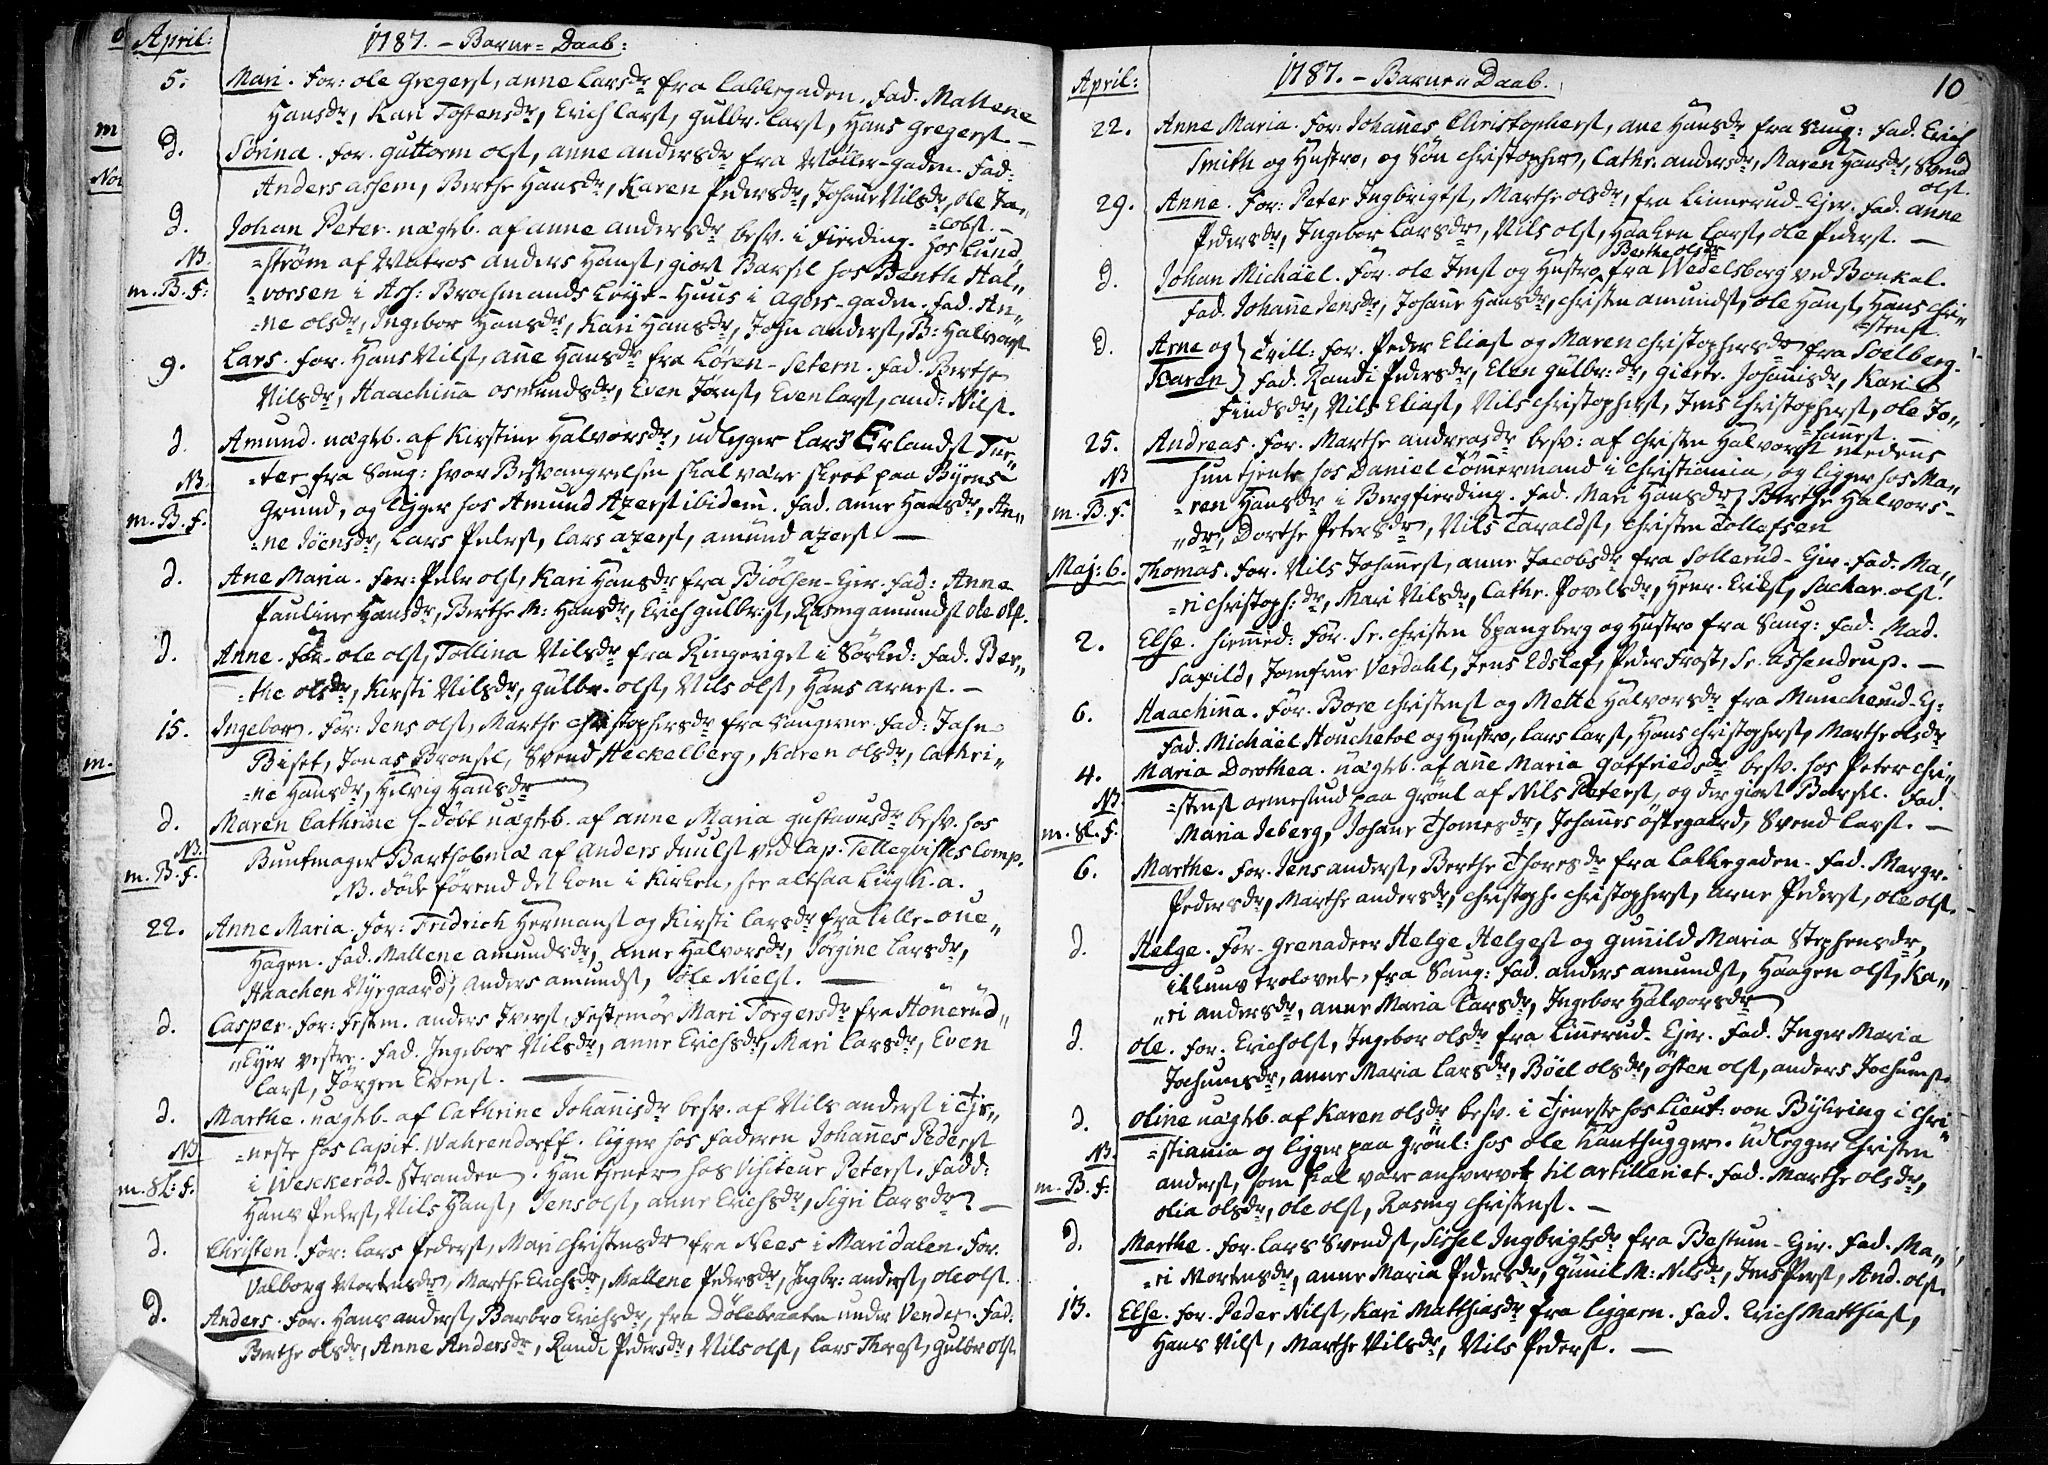 April: 1787. - Barne-Daab:
5. Mari. For: Ole Gregerst, anne Larsdr fra Lakkegaden. Fad. Mallene
Hansdr, Kari Tostensdr, Erich Larst, Gulbr. Larst, Hans Gregerst -
D. Sörina. For. Guttorm olst, anne andersdr fra Möller-gaden. Fad:
Anders ashem, Berthe Hansdr, Karen Pedersdr, Johane Nilsdr, Ole Ja-
=cobst. -
D. Johan Peter. nægteb. af anne andersdr besv. i Fierding. hos Lund-
NB. =ström af Matros anders Hanst, giort Barsel hos Benth Hal-
m. B. F: =vorsen i Ass: Brochmands Leye-Huus i Agers-gaden. Fad. An-
=ne olsdr, Ingebor Hansdr, Kari Hansdr, John anderst, B: Halvorst
9. Lars. For. Hans Nilst, ane Hansdr fra Lören-Setern. Fad. Berthe
Nilsdr, Haachina osmundsdr, Even Törnst, Even Larst, and: Nilst.
d. Amund. nægteb. af Kirstine Halvorsdr, udlegger Lars Erlandst Tue-
NB. =ter fra Saug: hvor Besvangrelsen skal være skeet paa Byens
m. B. F. Grund, og ligger hos Amund Azerst ibidem. Fad. anne Hansdr, An-
=ne Jöensdr, Lars Pederst, Lars azerst, amund azerst -
d. Ane Maria. For: Peder olst, Kari Hansdr fra Biölsen-Ejer. Fad: Anne
Pauline Hansdr, Berthe M: Hansdr, Erich Gulbr:st, Rasmg amundst Ole olst.
d. Anne. For. Ole olst, Tollina Nilsdr fra Ringeriget i Sörked: Fad. Ber-
=the olsdr, Kirsti Nilsdr, Gulbr. olst, Nils olst, Hans arnest. -
15. Ingebor. For: Jens olst, Marthe Christophersdr fra Saugerne. Fad: John
Biset, Jonas Bronsel, Svend Heckelberg, Karen olsdr, Cathri-
=ne Hansdr, Helvig Hansdr
d. Maren Cathrine H-döbt nægteb. af anne Maria Gustavusdr besv. hos
NB. Buntmager Bartholomæ af Anders Juulst ved Cap. Tellequistes Comp.
m. B. F. NB. döde förend det kom i Kirken, see altsaa Liig L. a.
22. Anne Maria. For: Fridrich Hermanst og Kirsti Larsdr fra Lille-öue-
Hagen. Fad. Mallene amundsdr, Anne Halvorsdr, Jörgine Larsdr,
Haachen Nyegaard, Anders amundst, Ole Nielst. -
d. Casper. For: Festem. anders Iverst, Festemöe Mari Torgersdr fra Hönerud-
Eyer vestre. Fad. Ingebor Nilsdr, anne Erichsdr, Mari Larsdr, Even
Larst, Jörgen Evenst. -
d. Marthe. nægteb. af Cathrine Johanisdr besv. af Nils anderst i Tje-
NB =neste hos Capit. Wahrendorff. ligger hos Faderen Johanes Pederst
m. Sl: F. i Weckeröd-Stranden. Han tjener hos Visiteur Peterst. Fadd:
Hans Pederst, Nils Hanst, Jens olst, anne Erichsdr, Sigri Larsdr -
d. Christen. For: Lars Pederst, Mari Christensdr fra Nees i Maridalen. For.
Valborg Mortensdr, Marthe Erichsdr, Mallene Pedersdr, Ingbr: anderst, Ole olst.
d. Anders. For. Hans anderst, Barbro Erichsdr, fra Dölebraaten under Vender. Fad.
Berthe olsdr, Anne Andersdr, Randi Pedersdr, Nils olst, Lars Thorst, Gulbr olst
April: 1787. - Barne-Daab. 10
22. Anne Maria. For: Johanes Christopherst, ane Hansdr fra Saug: Fad. Erich
Smith og Hustro, og Sön Christopher, Cathr. andersdr, Maren Hansdr, Svend
olst.
29. Anne. For: Peter Ingbrigtst, Marthe olsdr, fra Linnerud-Ejer. Fad. anne
Pedersdr, Ingebor Larsdr, Nils olst, Haaken Larst, Ole Pederst. -
Berthe olsdr
d. Johan Michäel. For. Ole Jenst og Hustro fra Wedelsborg ved Bonkal.
Fad. Johane Jensdr, Johane Hansdr, Christen amundst, Ole Hanst, Hans Chri-
=stenst.
d. Arne og } Tvill: For. Peder Eliast og Maren Christophersdr fra Soelberg.
Karen } Fad. Randi Pedersdr, Elen Gulbr:dr, Giertr. Johanisdr, Kari
Findsdr, Nils Eliast, Nils Christopherst, Jens Christopherst, Ole Jo-
=hanest.
25. Andreas. For. Marthe andreasdr besv: af Christen Halvorst medens
NB hun tjente hos Daniel Tömermand i Christiania, og ligger hos Ma-
m. B. F. =ren Hansdr i Bergfierding. Fad. Mari Hansdr, Berthe Halvors-
dr, Dorthe Petersdr, Nils Taraldst, Christen Tollefsen
Maj: 6. Thomas. For. Nils Johanest, anne Jacobsdr fra Sollerud-Ejer. Fad. Ma-
=ri Christoph:dr, Mari Nilsdr, Cathr. Povelsdr, Henr. Erikst, Sachar. olst.
2. Else. hiemmed: For. Sr. Christen Spangberg og Hustro fra Saug: Fad. Mad.
Saxild, Jomfrue Verdahl, Jens Edslef, Peder Frost, Sr. Assendrup. -
6. Haachina. For. Bore Christenst og Mette Halvorsdr fra Muncherud-Ej:
Fad. Michäel Houchetol og Hustro, Lars Larst, Hans Christopherst, Marthe olsdr
4. Maria Dorothea. nægteb. af ane Maria Gotfriedsdr besv. hos Peter Chri-
NB =stenst ormesund paa Grönl af Nils Peterst, og der giort Barsel. Fad.
m. Sl. F. Maria Jeberg, Johane Thomesdr, Johanes östegaard, Svend Larst. -
6. Marthe. For. Jens anderst, Berthe Thoresdr fra Lakkegaden. Fad. Margr.
Pedersdr, Marthe andersdr, Christoph. Christopherst, Arne Pederst, Ole olst.
d. Helge. For. Grenadeer Helge Helgest og Gunild Maria Stephensdr,
ikkuns trolovede, fra Saug: Fad. anders amundst, Haagen olst, Ka-
=ri andersdr, anne Maria Larsdr, Ingebor Halvorsdr
d. Ole. For. Erich olst, Ingebor olsdr fra Linnerud-Ejer. Fad. Inger Maria
Jochumsdr, anne Maria Larsdr, Böel olsdr, östen olst, anders Jochumst.
d. Oline nægteb. af Karen olsdr besv. i Tjeneste hos Lieut. von Bÿhring i Chri-
NB. =stiania og ligger paa Grönl: hos Ole Kanthugger. Udlegger Christen
m. B. F: anderst, som skal være anhvervet til artilleriet. Fad. Marthe olsdr,
Olia olsdr, Ole olst, Rasmg Christenst. -
d. Marthe. For. Lars Svendst, Sissel Ingbrigtsdr fra Bestum-Ejer. Fad. Ma-
=ri Mortensdr, anne Maria Pedersdr, Gunil M: Nilsdr, Jens Perst, And. olst.
13. Else. For. Peder Nilst, Kari Matthiasdr fra Liggern. Fad. Erich Matthiast,
Hans Nilst, Marthe Nilsdr, Nils Pederst. -